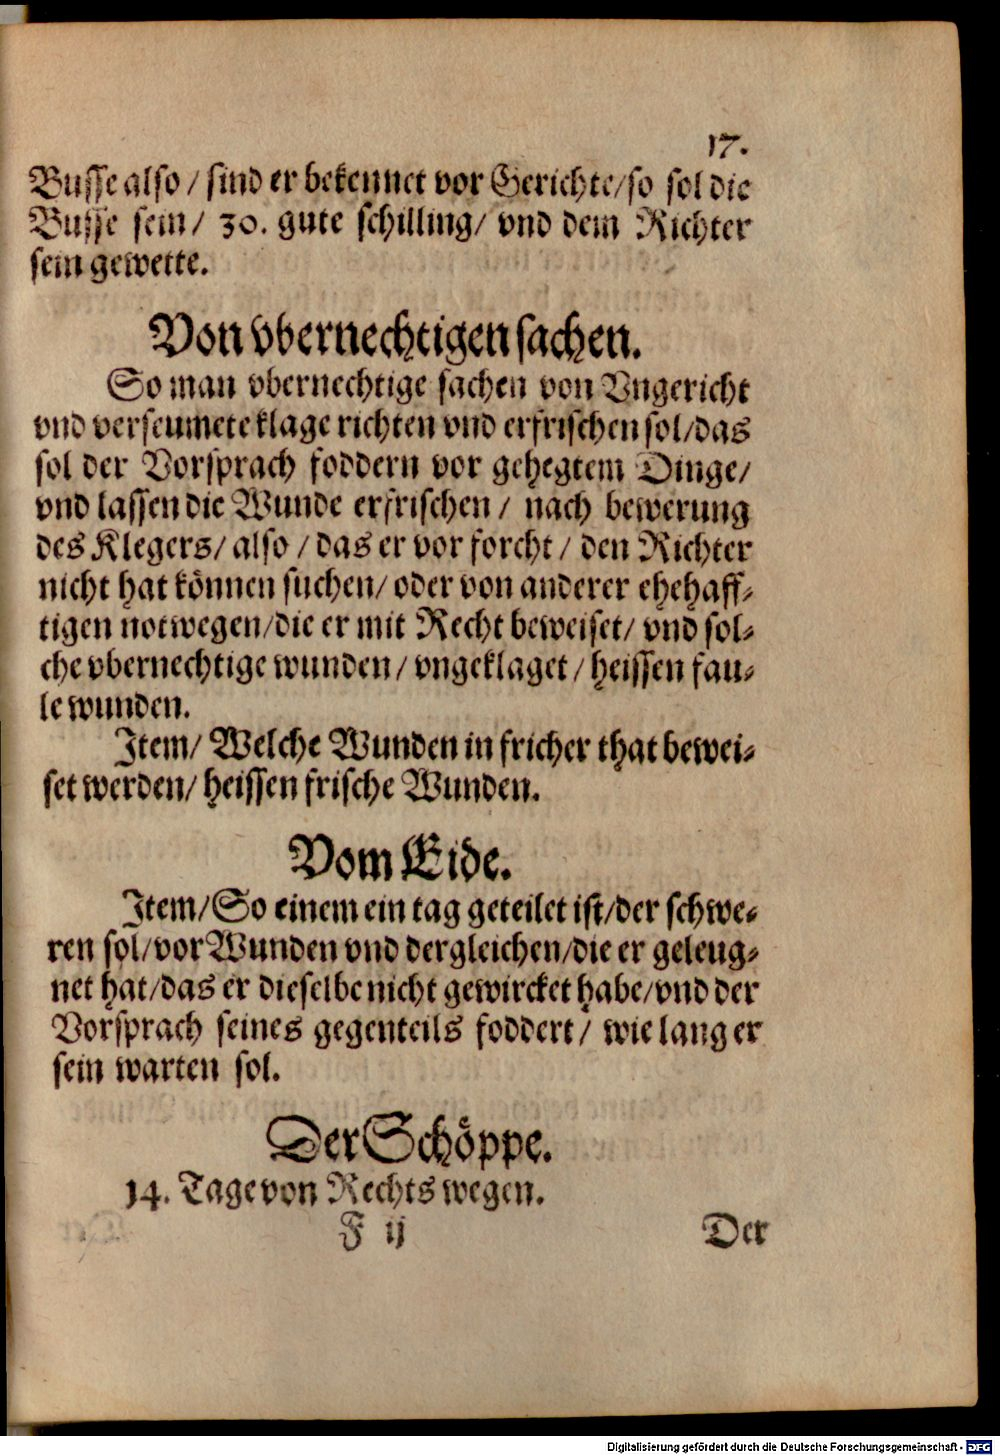 17.
Busse also / sind er bekennet vor Gerichte/so sol die
Busse sein/ 30. gute schilling/ vnd dem Richter
sein gewette.
Von vbernechtigen sachen.
So man vbernechtige sachen von Vngericht
vnd verseumete klage richten vnd erfrischen sol/das
sol der Vorsprach foddern vor gehegtem Dinge/
vnd lassen die Wunde erfrischen / nach bewerung
des Klegers/ also / das er vor forcht / den Richter
nicht hat können suchen/ oder von anderer ehehaff-
tigen notwegen/die er mit Recht beweiset/ vnd sol-
che vbernechtige wunden/ vngeklaget / heissen fau-
le wunden.
Item/ Welche Wunden in fricher that bewei-
set werden/ heissen frische Wunden.
Vom Eide.
Item/So einem ein tag geteilet ist/der schwe-
ren sol/vor Wunden vnd dergleichen/die er geleug-
net hat/das er dieselbe nicht gewircket habe/vnd der
Vorsprach seines gegenteils foddert/ wie lang er
sein warten sol.
Der Schöppe.
14. Tage von Rechts wegen.
F ij Der
Digitalisierung gefördert durch die Deutsche Forschungsgemeinschaft - DFG